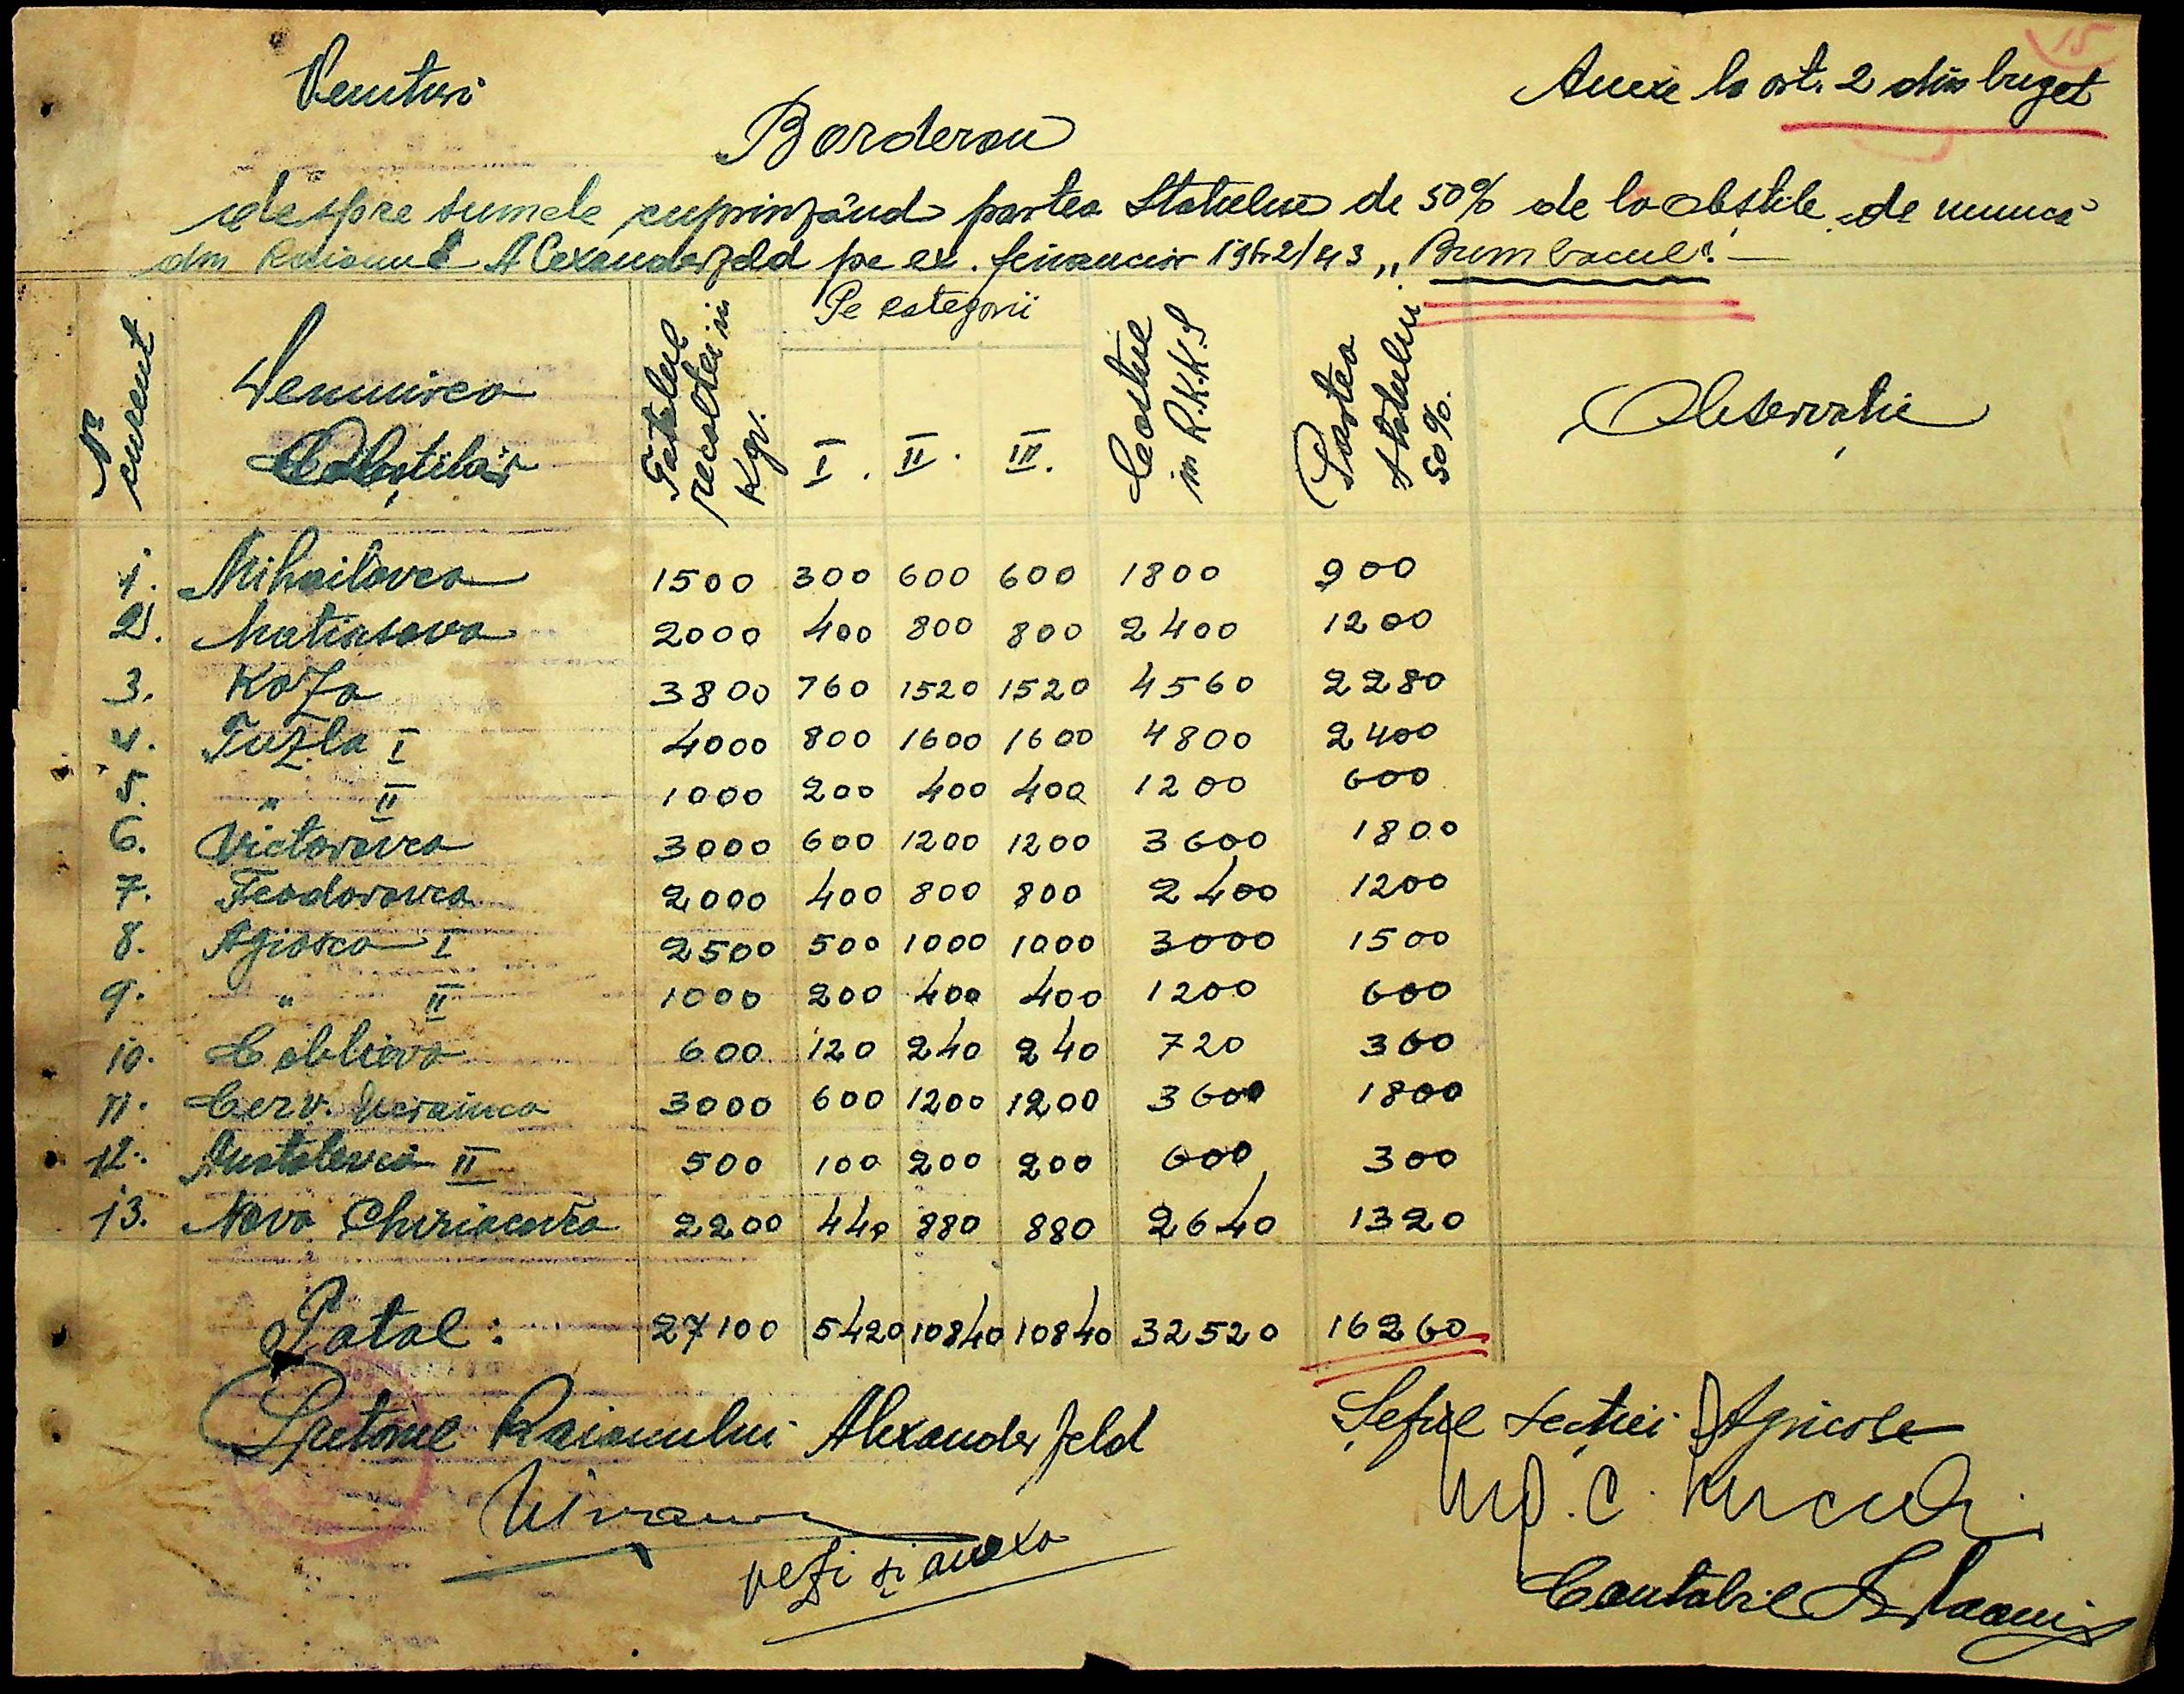 15
Venituri
Anexe la art. 2 din buget
Borderou
despre sumele cuprinzând partea Statului de 50% de la obștile de muncă
din Raionul Alexanderfeld pe ex. financiar 1942/43 „Bumbacul".—
Nº curent
Denumirea Obștilor
Totalul recoltei in Kgr.
Pe categorii
I. II. III.
Costul in R.K.K.S
Partea Statului 50%.
Observatii
1. Mihailovca 1500 300 600 600 1800 900
2. Matiasova 2000 400 800 800 2400 1200
3. Koza 3800 760 1520 1520 4560 2280
4. Tuzla I 4000 800 1600 1600 4800 2400
5. " II 1000 200 400 400 1200 600
6. Victorovca 3000 600 1200 1200 3600 1800
7. Feodorovca 2000 400 800 800 2400 1200
8. Agiasca I 2500 500 1000 1000 3000 1500
9. " II 1000 200 400 400 1200 600
10. Coblievo 600 120 240 240 720 360
11. Cerv. Ucrainca 3000 600 1200 1200 3600 1800
12. II 500 100 200 200 600 300
13. Novo Chiriacovca 2200 440 880 880 2640 1320
Total: 27100 5420 10840 10840 32520 16260
Pretorul Raionului Alexanderfeld
Șeful Secției Agricole
vezi și anexa
Contabil